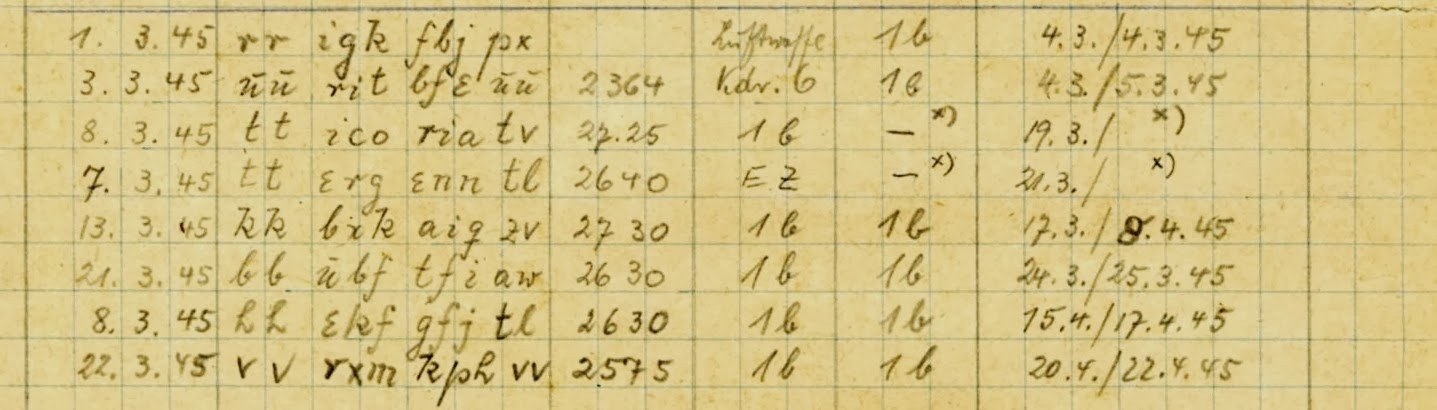 1. 3.45 rr igk fbj px Luftwaffe 1b 4.3./4.3.45
3. 3.45 üü rit bfε üü 2364 Kdr. 6 1b 4.3./5.3.45
8. 3.45 tt ico ria tv 27.25 1b — x) 19.3./ x)
7. 3.45 tt εrg εnn tl 2640 EZ — x) 21.3./ x)
13. 3.45 kk bxk aiq zv 2730 1b 1b 17.3./8.4.45
21. 3.45 bb übf tfi aw 2630 1b 1b 24.3./25.3.45
8. 3.45 hh εkf gfj tl 2630 1b 1b 15.4./17.4.45
22. 3.45 vv rxm kph vv 2575 1b 1b 20.4./22.4.45